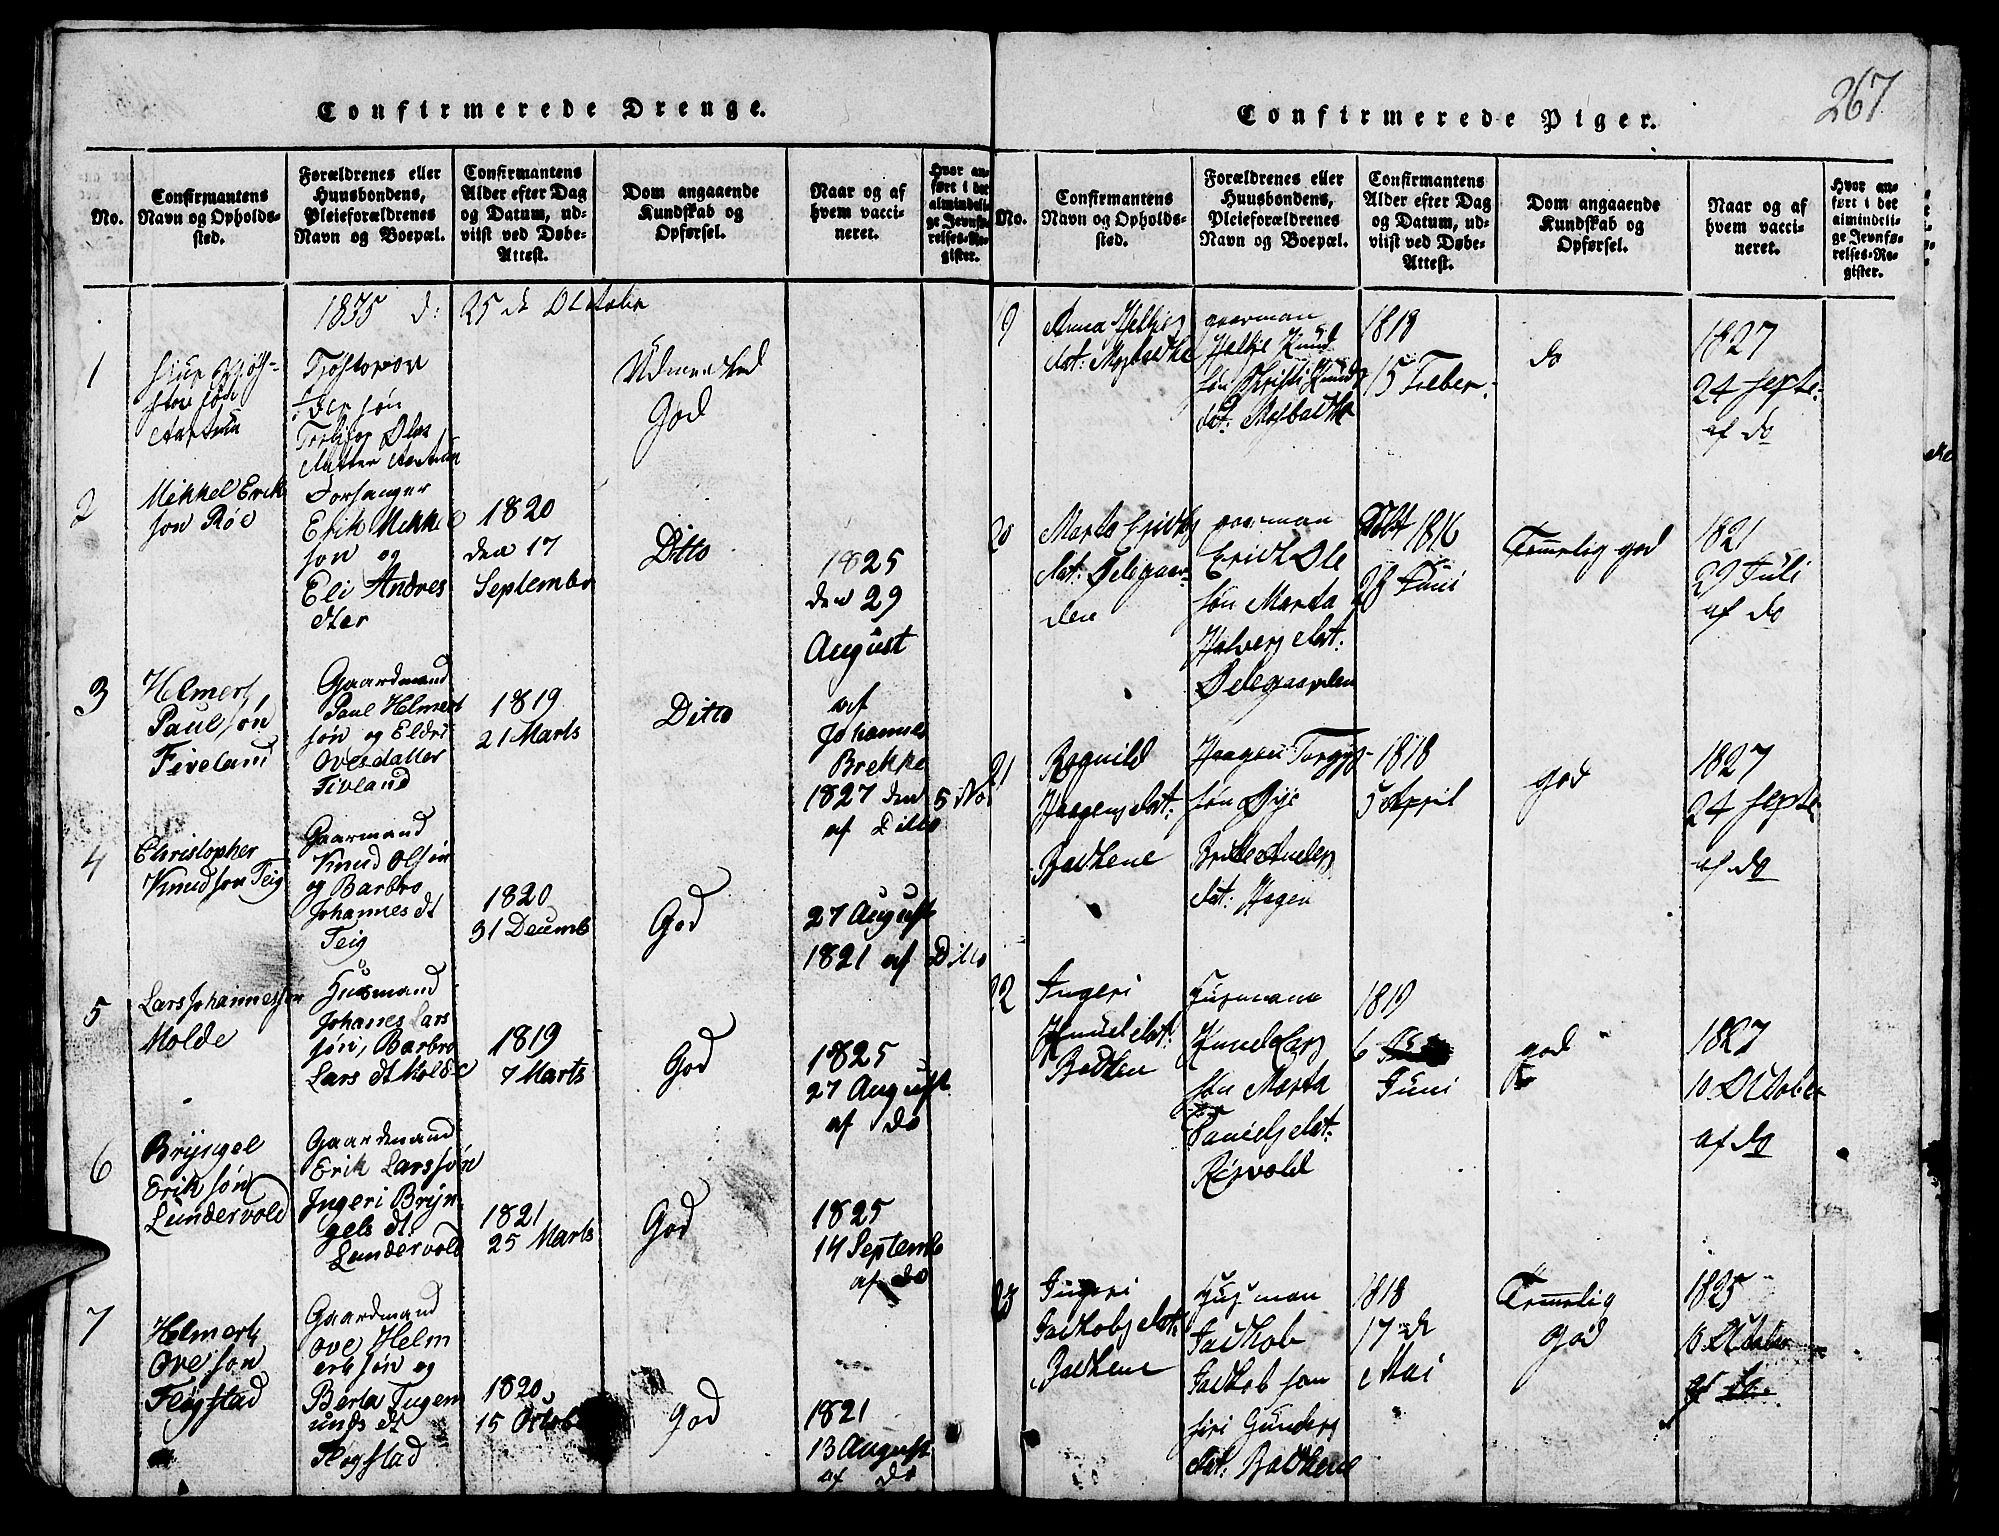 267
Confirmerede Drenge.
No.
Confirmantens
Navn og Opholds-
sted.
Forældrenes eller
Huusbondens,
Pleieforældrenes
Navn og Boepæl.
Confirmantens
Alder efter Dag
og Datum, ud-
viist ved Døbe-
Attest.
Dom angaaende
Kundskab og
Opførsel.
Naar og af
hvem vacci-
neret.
Hvor an-
ført i det
almindeli-
ge Jevnfø-
relses-Re-
gister.
1835 d: 25 de October
1
Aartun
Udmærked
God
2
Mikkel Erik
søn Röe
Forsanger
Erik Mikkel
søn og
Eli Andres
dter
1820
den 17
Septembr
Ditto
1825
den 29
August
af
Johannes
Brekke
3
Helmert
Paul søn
Fiveland
Gaardmand
Paul Helmert
søn og Eldri
Ovesdatter
Fivland
1819
21 Marts
Ditto
1827 den 5 No
af Ditto
4
Christopher
Knudsøn Teig
Gaarmand
Knud Olsøn
og Barbro
Johannes dt
Teig
1820
31 Decemb
God
27 August
1821 af Ditto
5
Lars Johannessøn
Molde
Husmand
Johanes Lars
søn, Barbro
Lars dt Molde
1819
7 Marts
God
1825
27 August
af do
6
Bryngel
Erik søn
Lundervold
Gaardmand
Erik Larssøn
Ingeri Bryn
gels dt
Lundervold
1821
25 Marts
God
1825
14 Septemb
af do
7
Helmert
Ove søn
Fløgstad
Gaardmand
Ove Helm
ert søn og
Berta Ingem
unds dt
Fløgstad
1820
15 Octob
God
1821
13 August
af do
Confirmerede Piger.
No.
Confirmantens
Navn og Opholds-
sted.
Forældrenes eller
Huusbondens,
Pleieforældrenes
Navn og Boepæl.
Confirmantens
Alder efter Dag
og Datum, ud-
viist ved Døbe-
Attest.
Dom angaaende
Kundskab og
Opførsel.
Naar og af
hvem vacci-
neret.
Hvor an-
ført i det
almindeli-
ge Jevnfø-
relses-Re-
gister.
9
Anna Helljes
dat: Mosbackke
gaarman
Helje Knud
søn Christi Knuds
dat: Mosbackke
1818
15 Feber
do
1827
24 septe
af do
20
Marta Erick
dat: Ødegaar-
den
gaarman
Erick Ole
søn Marta
Halvers dat:
Ødegaarden
Døbt 1816
28 Juni
Temelig god
1821
29 Juli
af do
21
Ragnild
Haagens dat:
Backene
Haagen Torgys
søn Øye
Brite Anders
dat: Hagen
1818
5 April
god
1827
24 septe
af do
22
Ingeri
Knuds dat:
Backen
Husmann
Knud Lars
søn Marta
Daniels dat:
Risvold
1819
6
Juni
god
1827
10 October
af do
23
Ingeri
Jackobs dat:
Backene
Husman
Jackob
Jackob søn
siri Gunders
dat: Backene
1818
17 de
Mai
Temelig
God
1825
10 October